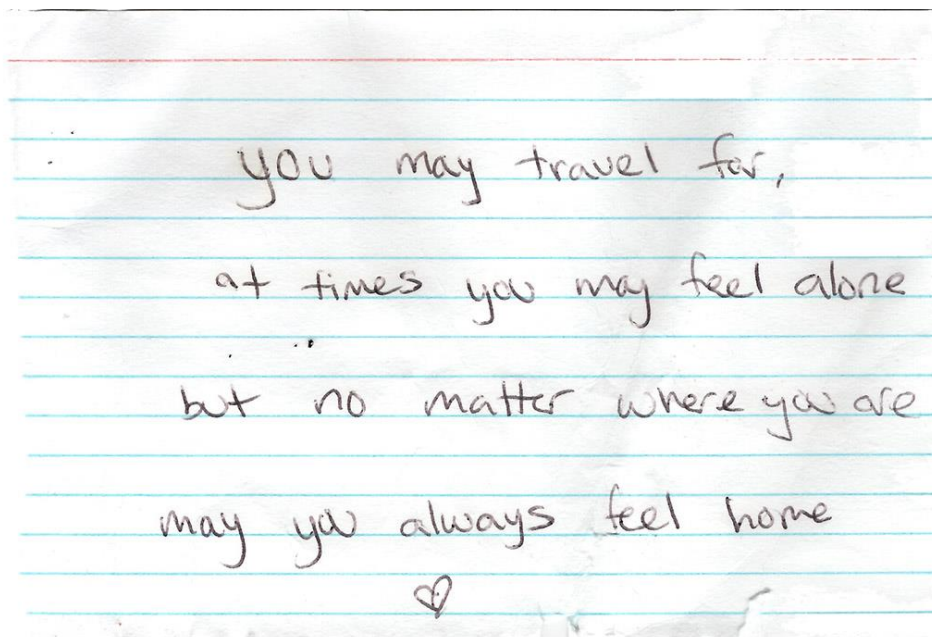 you may travel far,
at times you may feel alone
but no matter where you are
may you always feel home
♡